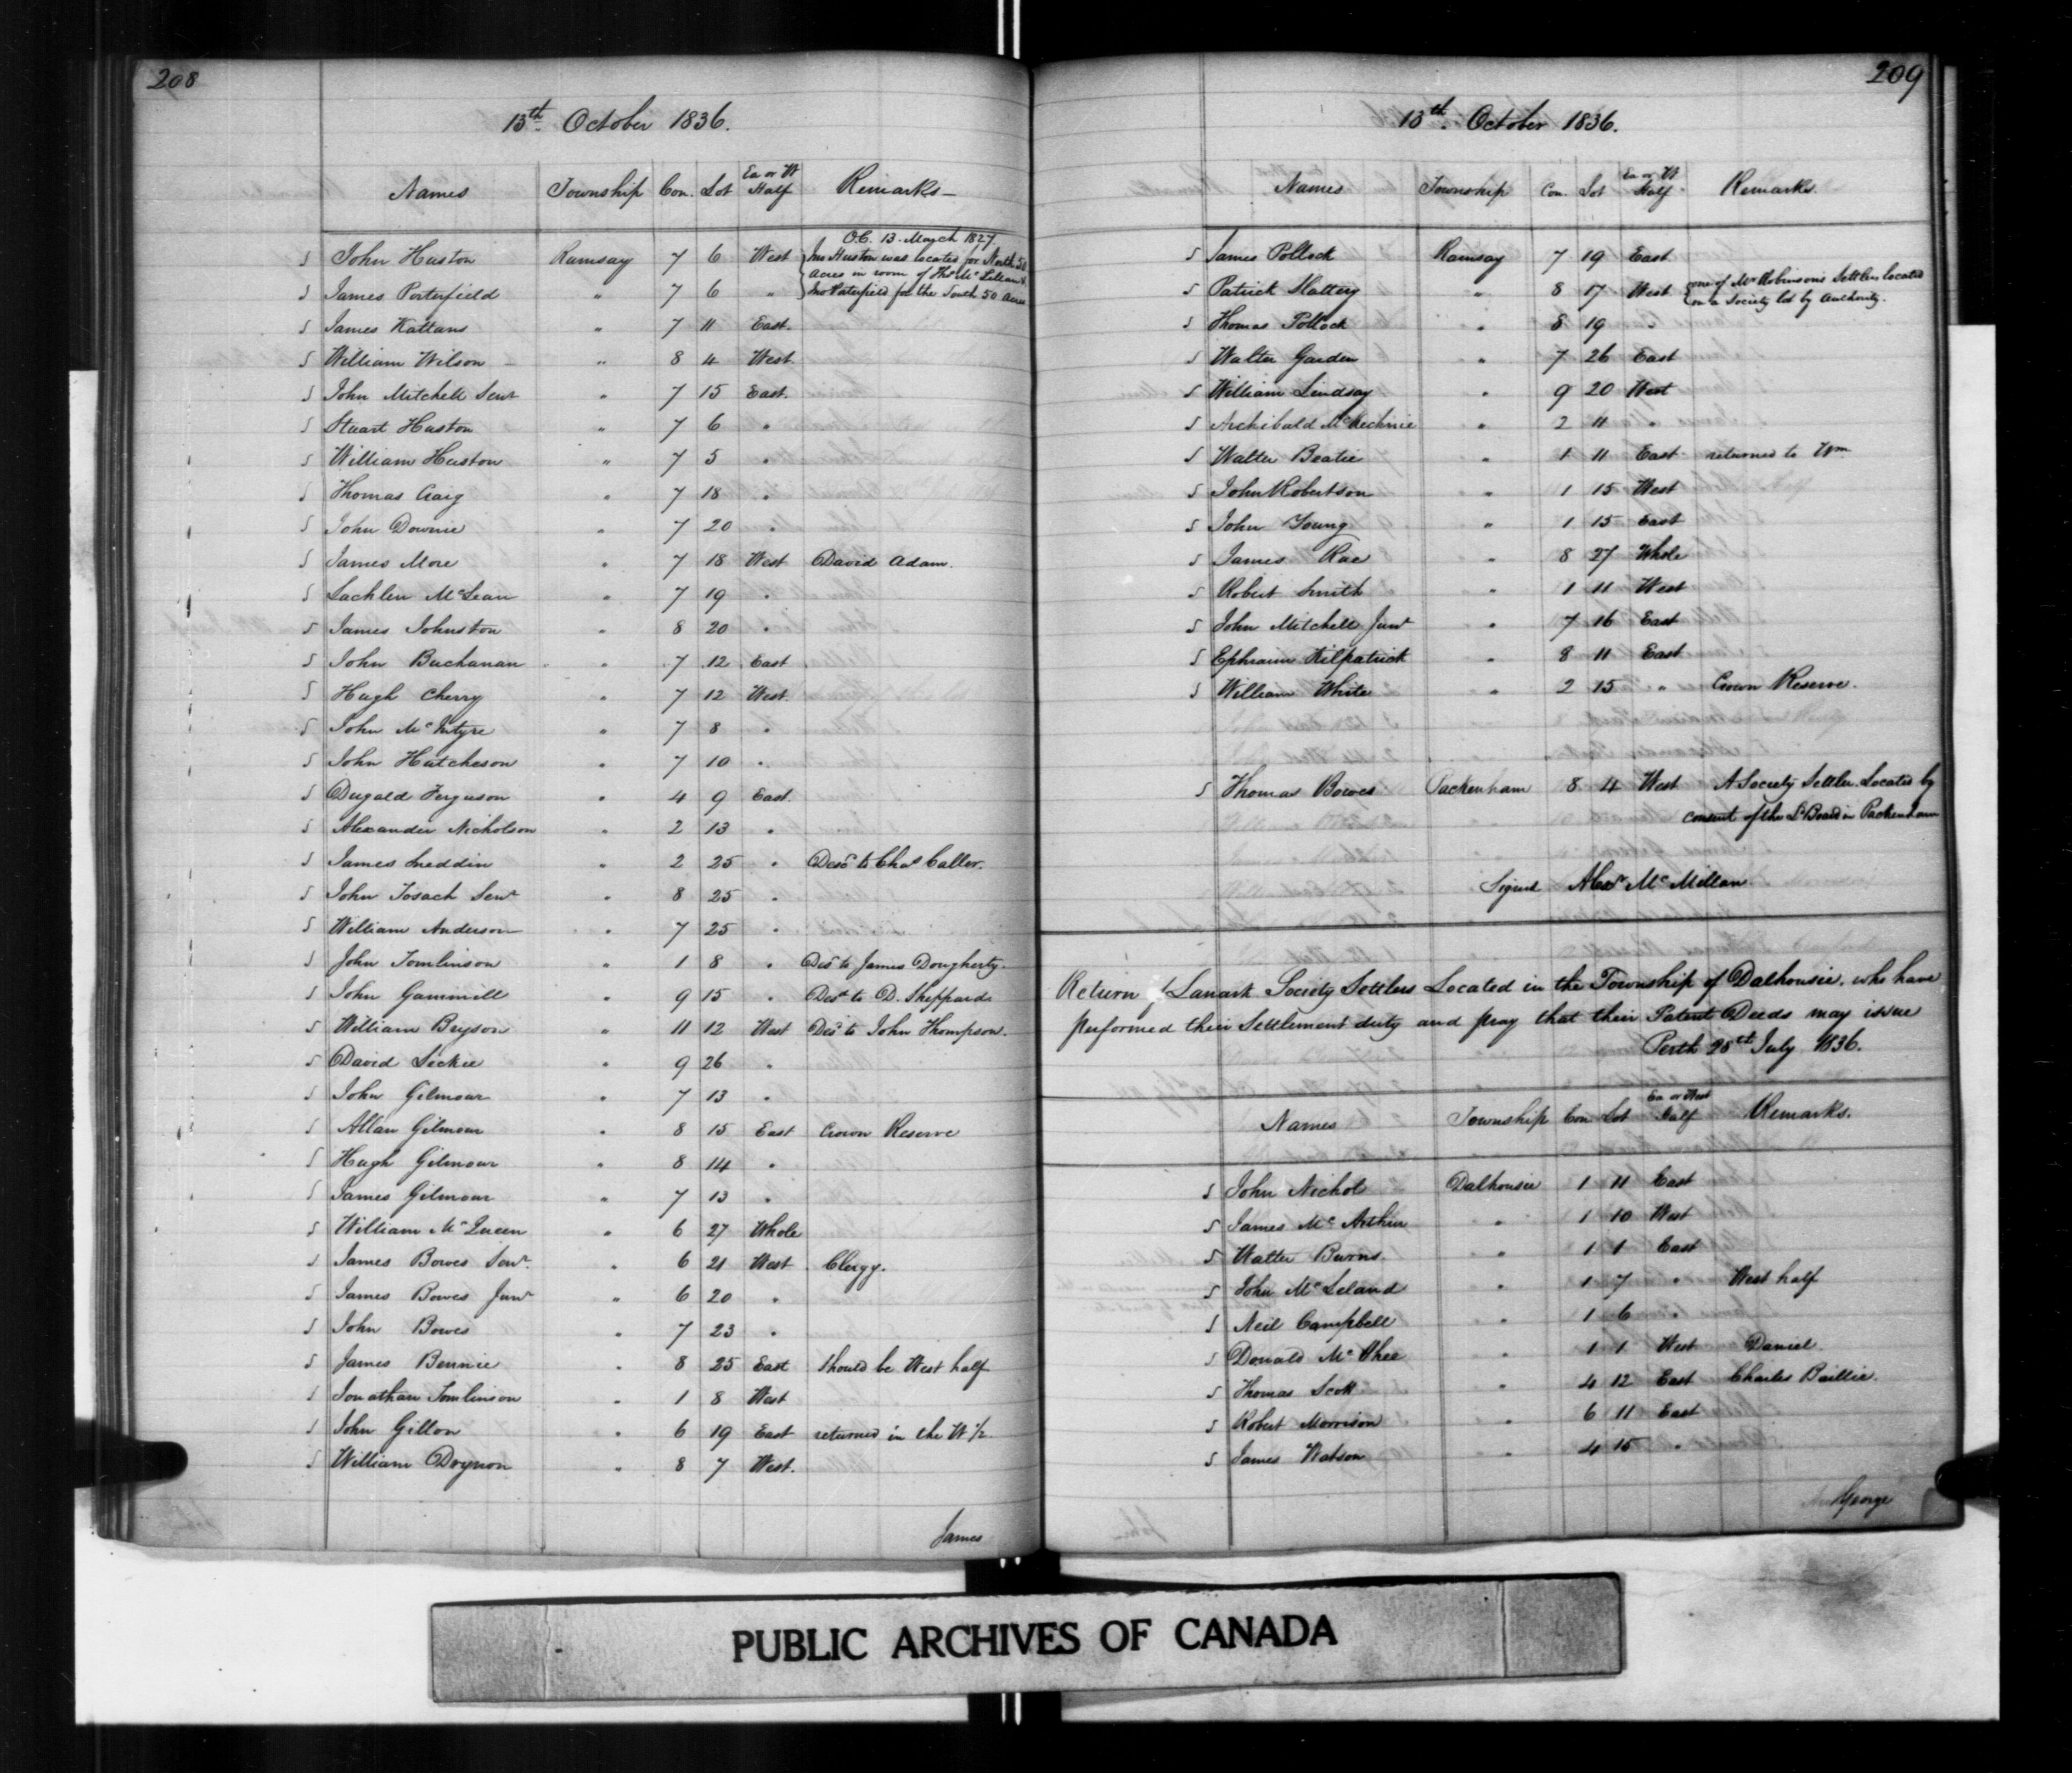 208
13th October 1836.
Names Township Con. Lot Ea or Wt Half Remarks
O.C. 13 March 1827
S John Huston Ramsay 7 6 West Jno Huston was located for North 50
Acres in room of Thos McLellan &
S James Porterfield " 7 6 " Jno Porterfield for the South 50 Acres
S James Kattans " 7 11 East.
S William Wilson " 8 4 West
S John Mitchell Senr " 7 15 East.
S Stuart Huston " 7 6 "
S William Huston " 7 5 "
S Thomas Craig " 7 18 "
S John Downie " 7 20 "
S James More " 7 18 West David Adam.
S Lachlen McLean " 7 19 "
S James Johnston " 8 20 "
S John Buchanan " 7 12 East
S Hugh Cherry " 7 12 West
S John McIntyre " 7 8 "
S John Hutcheson " 7 10 "
S Dugald Ferguson " 4 9 East
S Alexander Nicholson " 2 13 "
S James Sneddin " 2 25 " Desd to Chas
S John Tosach Senr " 8 25 "
S William Anderson " 7 25 "
S John Tomlinson " 1 8 " Desd to James Dougherty.
S John Gammill " 9 15 " Desd to D. Sheppard
S William Bryson " 11 12 West Desd to John Thompson.
S David Leckie " 9 26 "
S John Gilmour " 7 13 "
S Allan Gilmour " 8 15 East Crown Reserve
S Hugh Gilmour " 8 14 "
S James Gilmour " 7 13 "
S William McQueen " 6 27 Whole
S James Bowes Senr. " 6 21 West Clergy.
S James Bowes Junr " 6 20 "
S John Bowes " 7 23 "
S James Bennie " 8 25 East Should be West half
S Jonathan Tomlinson " 1 8 West
S John Gillon " 6 19 East returned in the W 1/2
S William " 8 7 West.
James
209
13th. October 1836.
Names Township Con. Lot Ea or Wt Half Remarks.
S James Pollock Ramsay 7 19 East
S Patrick Slattery " 8 17 West one of Mr Robinsons Settlers located
on a Society lot by Authority.
S Thomas Pollock " 8 19 "
S Walter Garden " 7 26 East
S William Lindsay " 9 20 West
S Archibald McKechnie " 2 11 "
S Walter Beatie " 1 11 East returned to Wm
S John Robertson " 1 15 West
S John Young " 1 15 East
S James Rae " 8 27 Whole
S Robert Smith " 1 11 West
S John Mitchell Junr " 7 16 East
S Ephraim Kilpatrick " 8 11 East
S William White " 2 15 " Crown Reserve.
S Thomas Bowes Packenham 8 4 West A Society Settler. Located by
consent of the Ld Board in Packenham
Signed Alexr McMillan.
Return of Lanark Society Settlers Located in the Township of Dalhousie, who have
performed their Settlement duty and pray that their Patent Deeds may issue
Perth 28th July 1836.
Names Township Con Lot Ea or West Half Remarks.
S John Nichol Dalhousie 1 11 East
S James McArthur " 1 10 West
S Walter Burns. " 1 1 East
S John McLeland " 1 7 " West half
S Neil Campbell " 1 6 "
S Donald McPhee " 1 1 West Daniel
S Thomas Scott " 4 12 East Charles Baillie.
S Robert Morrison " 6 11 East
S James Watson " 4 15 "
George
PUBLIC ARCHIVES OF CANADA